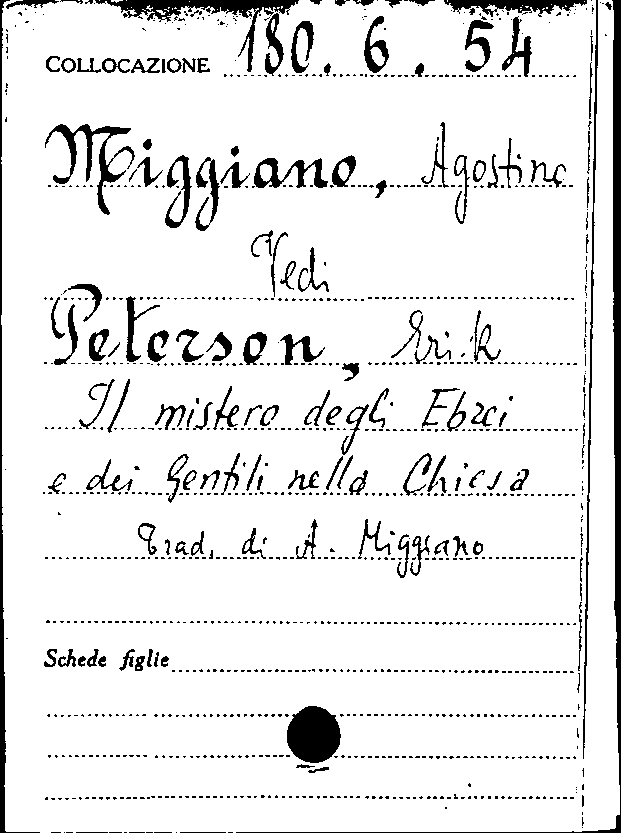 COLLOCAZIONE 180. 6. 54
Miggiano, Agostino
Vedi
Peterson, Erik
Il mistero degli Ebrei
e dei Gentili nella Chiesa
Trad. di A. Miggiano
Schede figlie